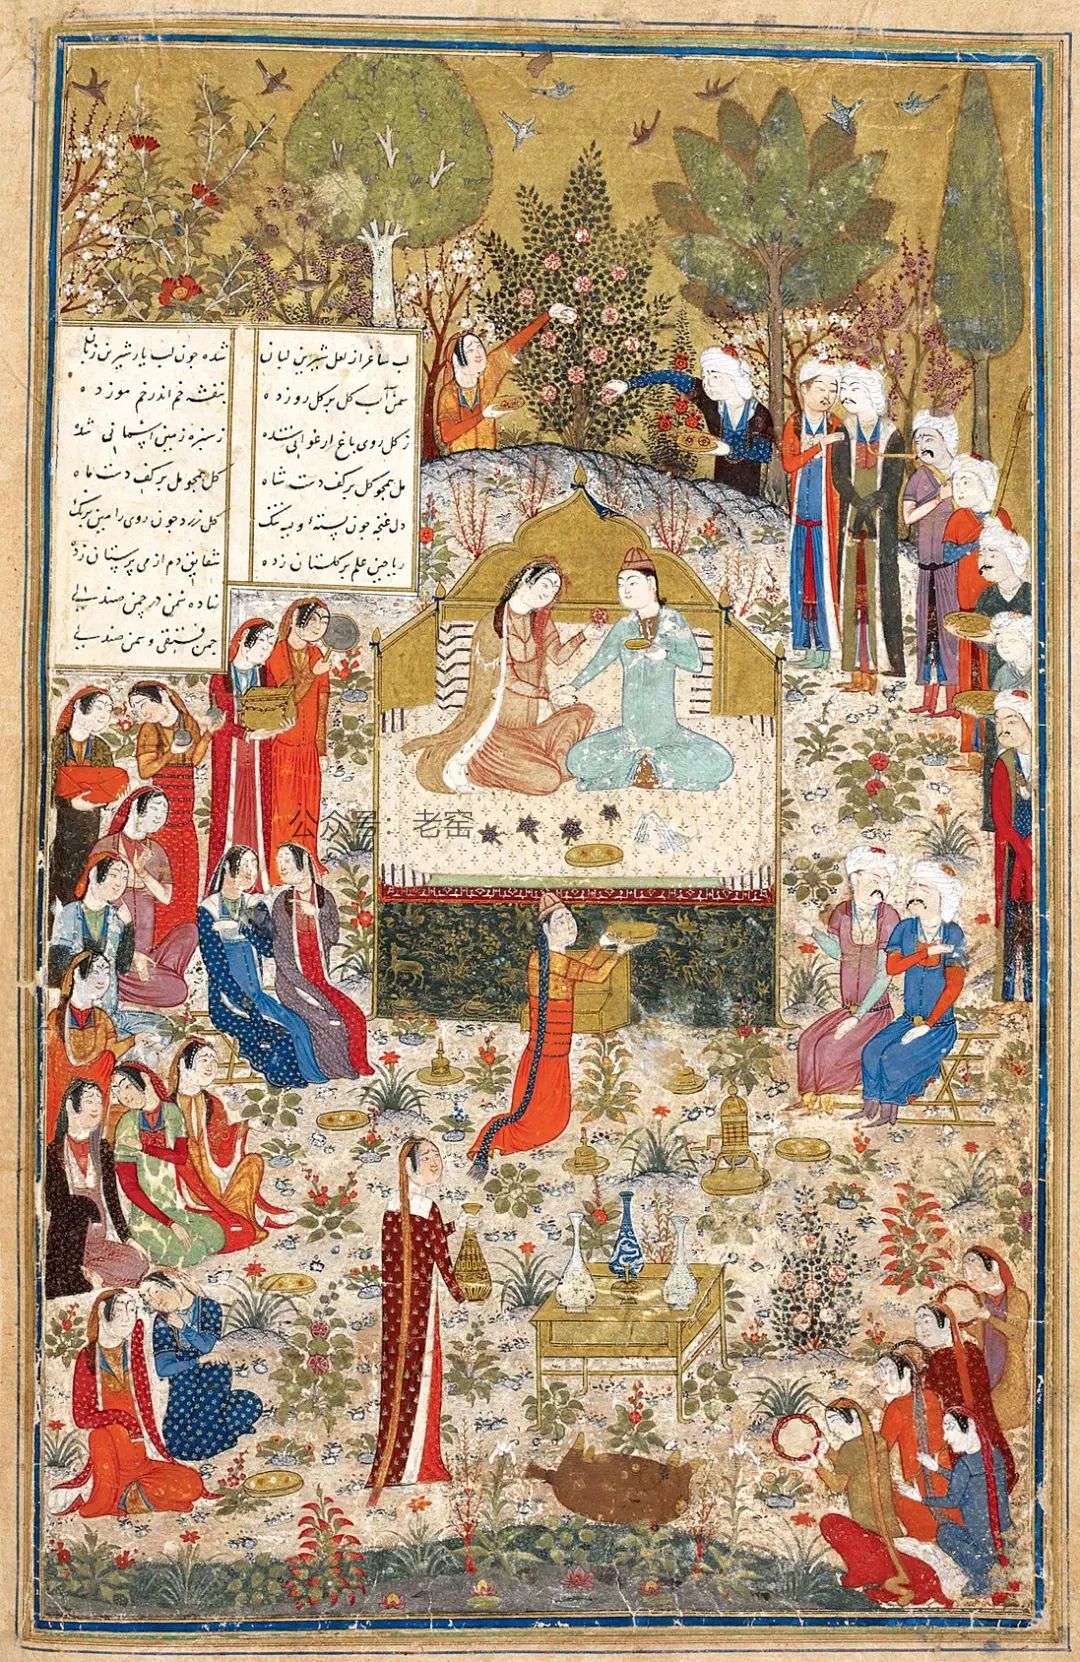 لب ساغر از لعل شیرین لبان شده چون لب یار شیرین زبان
سمن آب گل بر گل رو زده بنفشه خم اندر خم مو زده
ز گل روی باغ ارغوانی شده ز سبزه زمین آسمانی شده
مل همچو گل بر کف دست شاه گل همچو مل بر کف دست ماه
دل غنچه چون پستهٔ و بسته تنگ گل زرد چون روی رامین برنگ
ریاحین علم بر گلستان زده شقایق دم از می پرستان زده
نهاده سمن در چمن صندلی
چمن فستقی و سمن صندلی
公众号：老窑